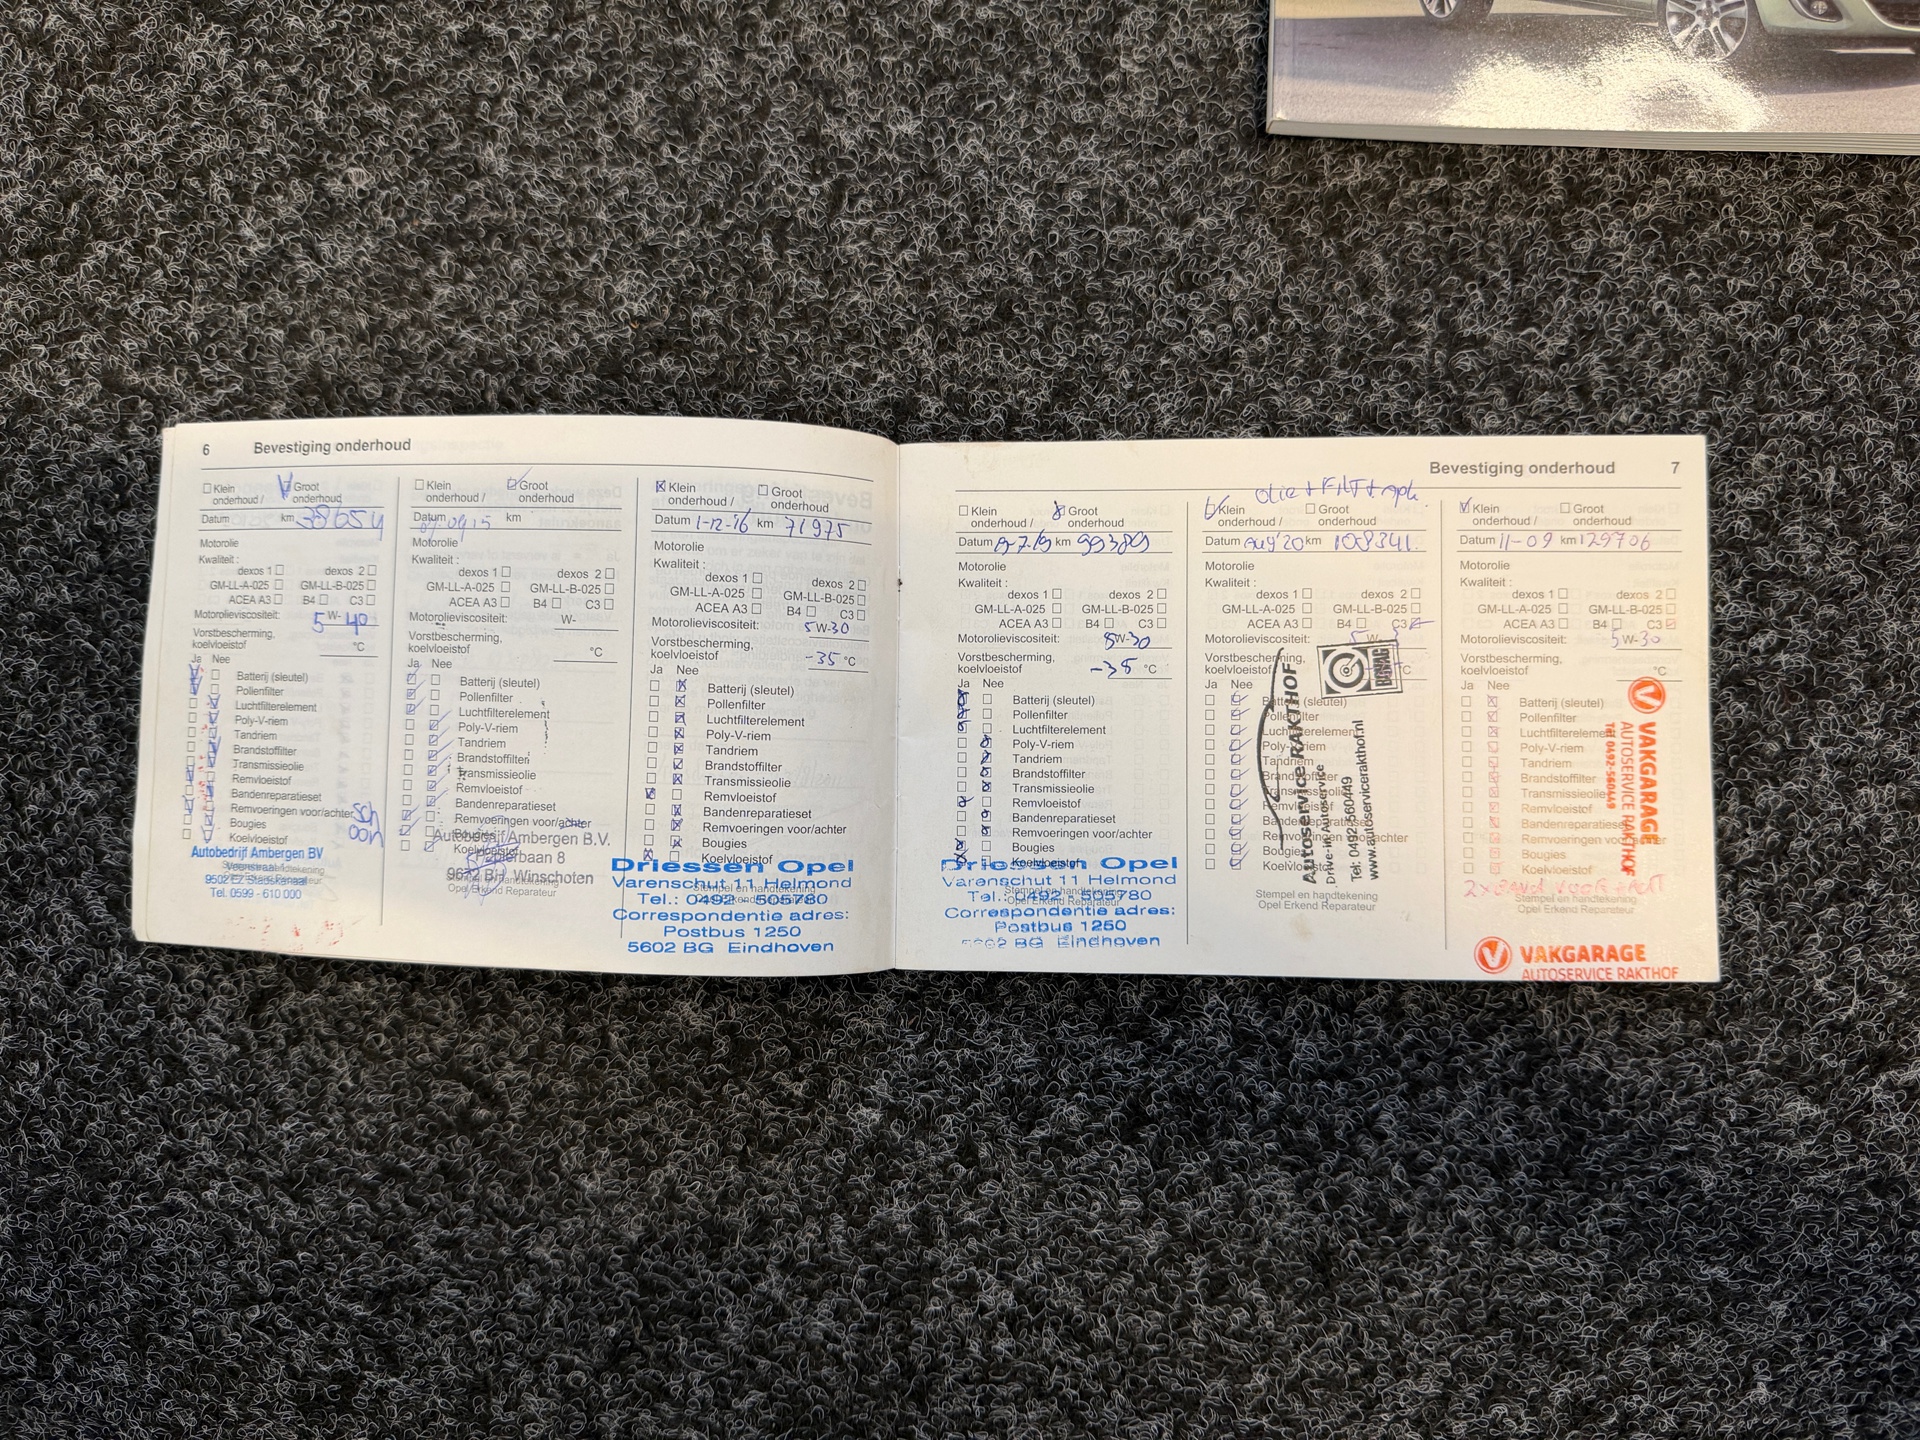 6 Bevestiging onderhoud
Klein onderhoud / Groot onderhoud
Datum km 38654
Motorolie
Kwaliteit:
dexos 1 dexos 2
GM-LL-A-025 GM-LL-B-025
ACEA A3 B4 C3
Motorolieviscositeit: 5 W- 40
Vorstbescherming,
koelvloeistof °C
Ja Nee
Batterij (sleutel)
Pollenfilter
Luchtfilterelement
Poly-V-riem
Tandriem
Brandstoffilter
Transmissieolie
Remvloeistof
Bandenreparatieset
Remvoeringen voor/achter
Bougies
Koelvloeistof
Autobedrijf Ambergen BV
9502 EZ Stadskanaal
Tel. 0599 - 610 000
Klein onderhoud / Groot onderhoud
Datum km
Motorolie
Kwaliteit:
dexos 1 dexos 2
GM-LL-A-025 GM-LL-B-025
ACEA A3 B4 C3
Motorolieviscositeit: W-
Vorstbescherming,
koelvloeistof °C
Ja Nee
Batterij (sleutel)
Pollenfilter
Luchtfilterelement
Poly-V-riem
Tandriem
Brandstoffilter
Transmissieolie
Remvloeistof
Bandenreparatieset
Remvoeringen voor/achter
Bougies
Koelvloeistof
Autobedrijf Ambergen B.V.
Papierbaan 8
9672 BH Winschoten
Opel Erkend Reparateur
Klein onderhoud / Groot onderhoud
Datum 1-12-16 km 71975
Motorolie
Kwaliteit:
dexos 1 dexos 2
GM-LL-A-025 GM-LL-B-025
ACEA A3 B4 C3
Motorolieviscositeit: 5 W-30
Vorstbescherming,
koelvloeistof -35 °C
Ja Nee
Batterij (sleutel)
Pollenfilter
Luchtfilterelement
Poly-V-riem
Tandriem
Brandstoffilter
Transmissieolie
Remvloeistof
Bandenreparatieset
Remvoeringen voor/achter
Bougies
Koelvloeistof
Driessen Opel
Varenschut 11 Helmond
Tel.: 0492 - 505780
Correspondentie adres:
Postbus 1250
5602 BG Eindhoven
Bevestiging onderhoud 7
Klein onderhoud / Groot onderhoud
Datum km 99389
Motorolie
Kwaliteit:
dexos 1 dexos 2
GM-LL-A-025 GM-LL-B-025
ACEA A3 B4 C3
Motorolieviscositeit: 5W-30
Vorstbescherming,
koelvloeistof -35 °C
Ja Nee
Batterij (sleutel)
Pollenfilter
Luchtfilterelement
Poly-V-riem
Tandriem
Brandstoffilter
Transmissieolie
Remvloeistof
Bandenreparatieset
Remvoeringen voor/achter
Bougies
Koelvloeistof
Driessen Opel
Varenschut 11 Helmond
Tel.: 0492 - 505780
Correspondentie adres:
Postbus 1250
5602 BG Eindhoven
olie + Filt +
Klein onderhoud / Groot onderhoud
Datum aug'20 km 108341
Motorolie
Kwaliteit:
dexos 1 dexos 2
GM-LL-A-025 GM-LL-B-025
ACEA A3 B4 C3
Motorolieviscositeit: 5 W-
Vorstbescherming,
koelvloeistof
Ja Nee
Batterij (sleutel)
Pollenfilter
Luchtfilterelement
Poly-V-riem
Tandriem
Brandstoffilter
Transmissieolie
Remvloeistof
Bandenreparatieset
Remvoeringen voor/achter
Bougies
Koelvloeistof
Autoservice RAKTHOF
Drive-in Autoservice
Tel: 0492-560449
www.autoservicerakthof.nl
BOVAG
Stempel en handtekening
Opel Erkend Reparateur
Klein onderhoud / Groot onderhoud
Datum 11-09 km 129706
Motorolie
Kwaliteit:
dexos 1 dexos 2
GM-LL-A-025 GM-LL-B-025
ACEA A3 B4 C3
Motorolieviscositeit: 5 W-30
Vorstbescherming,
koelvloeistof °C
Ja Nee
Batterij (sleutel)
Pollenfilter
Luchtfilterelement
Poly-V-riem
Tandriem
Brandstoffilter
Transmissieolie
Remvloeistof
Bandenreparatieset
Remvoeringen voor/achter
Bougies
Koelvloeistof
VAKGARAGE
AUTOSERVICE RAKTHOF
Tel 0492-560449
Stempel en handtekening
Opel Erkend Reparateur
VAKGARAGE
AUTOSERVICE RAKTHOF